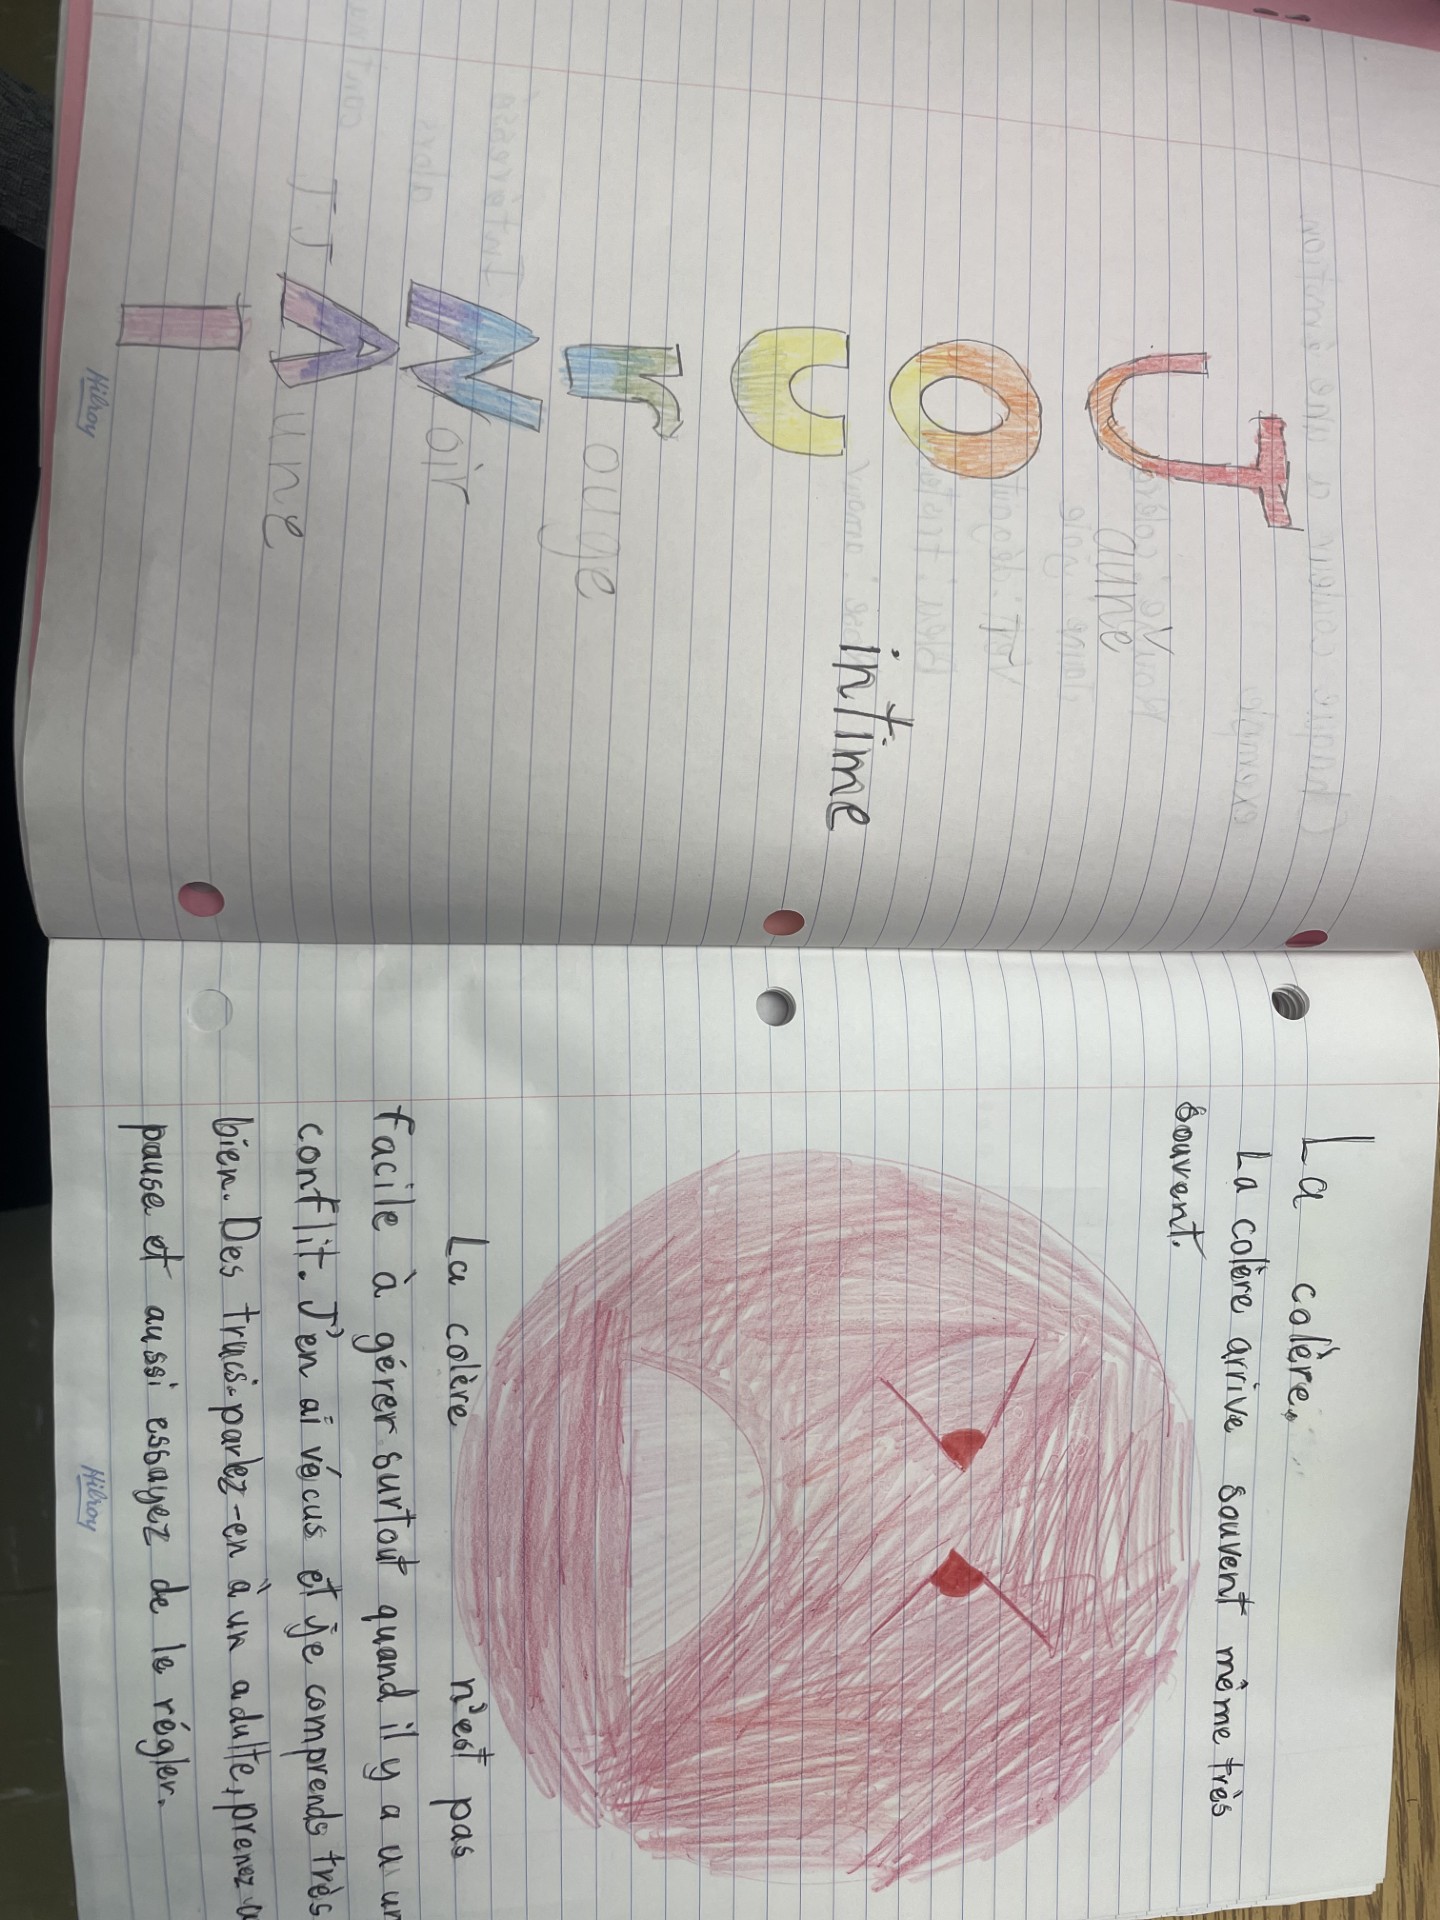 JOUrNAl
intime
aune
ouge
oir
aune
Hilroy
La colère.
La colère arrive souvent même très
souvent.
La colère n'est pas
facile à gérer surtout quand il y a un
conflit. J'en ai vécus et je comprends très
bien. Des trucs-parlez-en à un adulte, prenez
pause et aussi essayez de le régler.
Hilroy